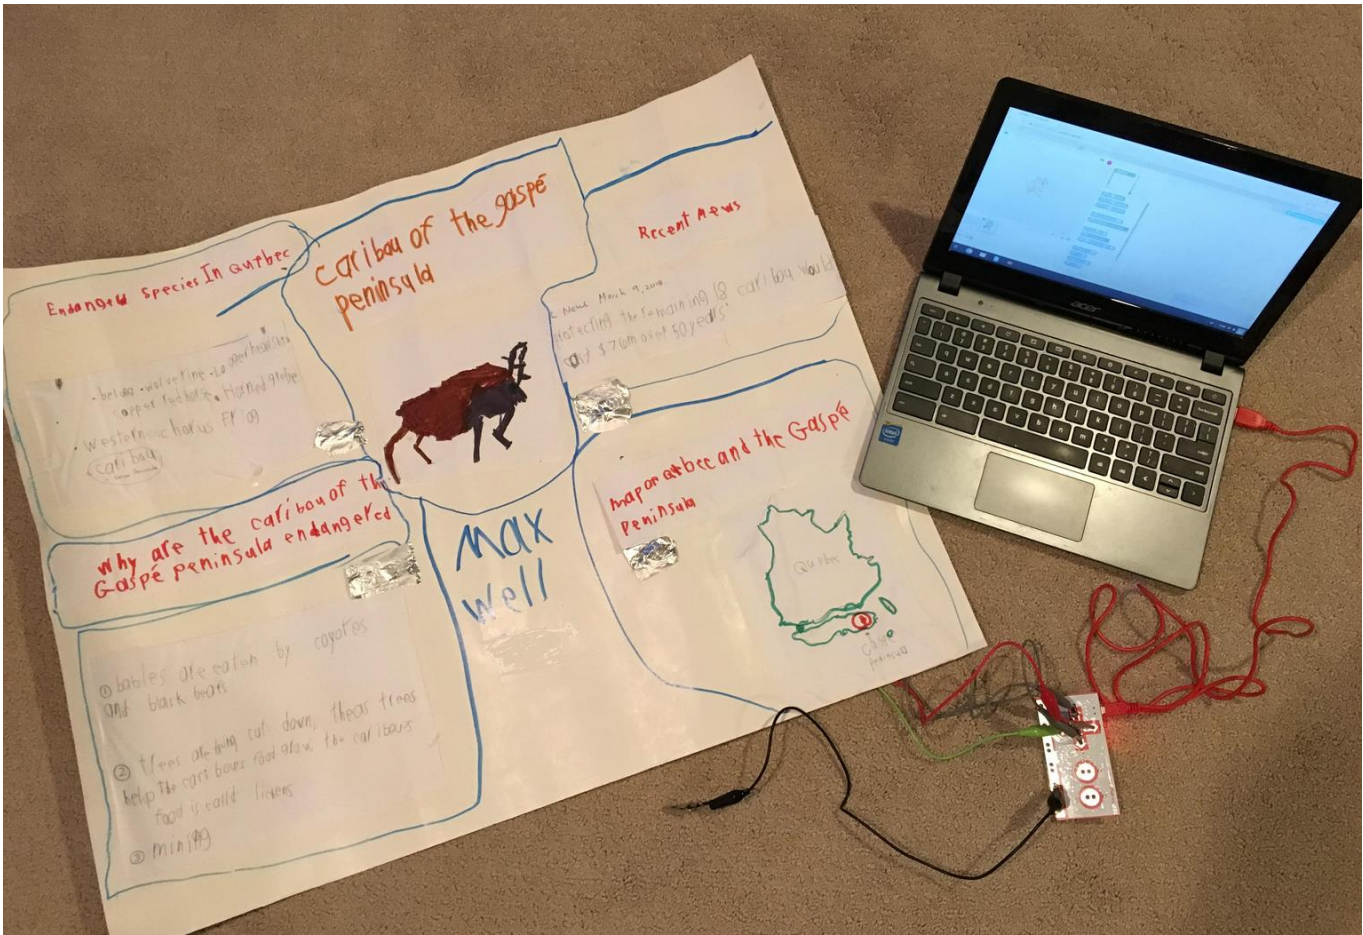 Endangerd Species In Québec
. beluga . wolverine . Loggerhead
copper redhorse . Horned grebe
. Western chorus Frog
caribou
caribou of the gaspé
peninsula
Recent News
News March 9, 2018
protecting the remaining 18 caribou would
cost $76m over 50 years
why are the caribou of the
Gaspé peninsula endangered
① babies are eaten by coyotes
and black bears
② trees are being cuts down, theas trees
help the caribous food grow. the caribous
food is calld lichens
③ mining
Max
well
map of québec and the Gaspé
peninsula
Québec
Gaspé
peninsula
acer
intel